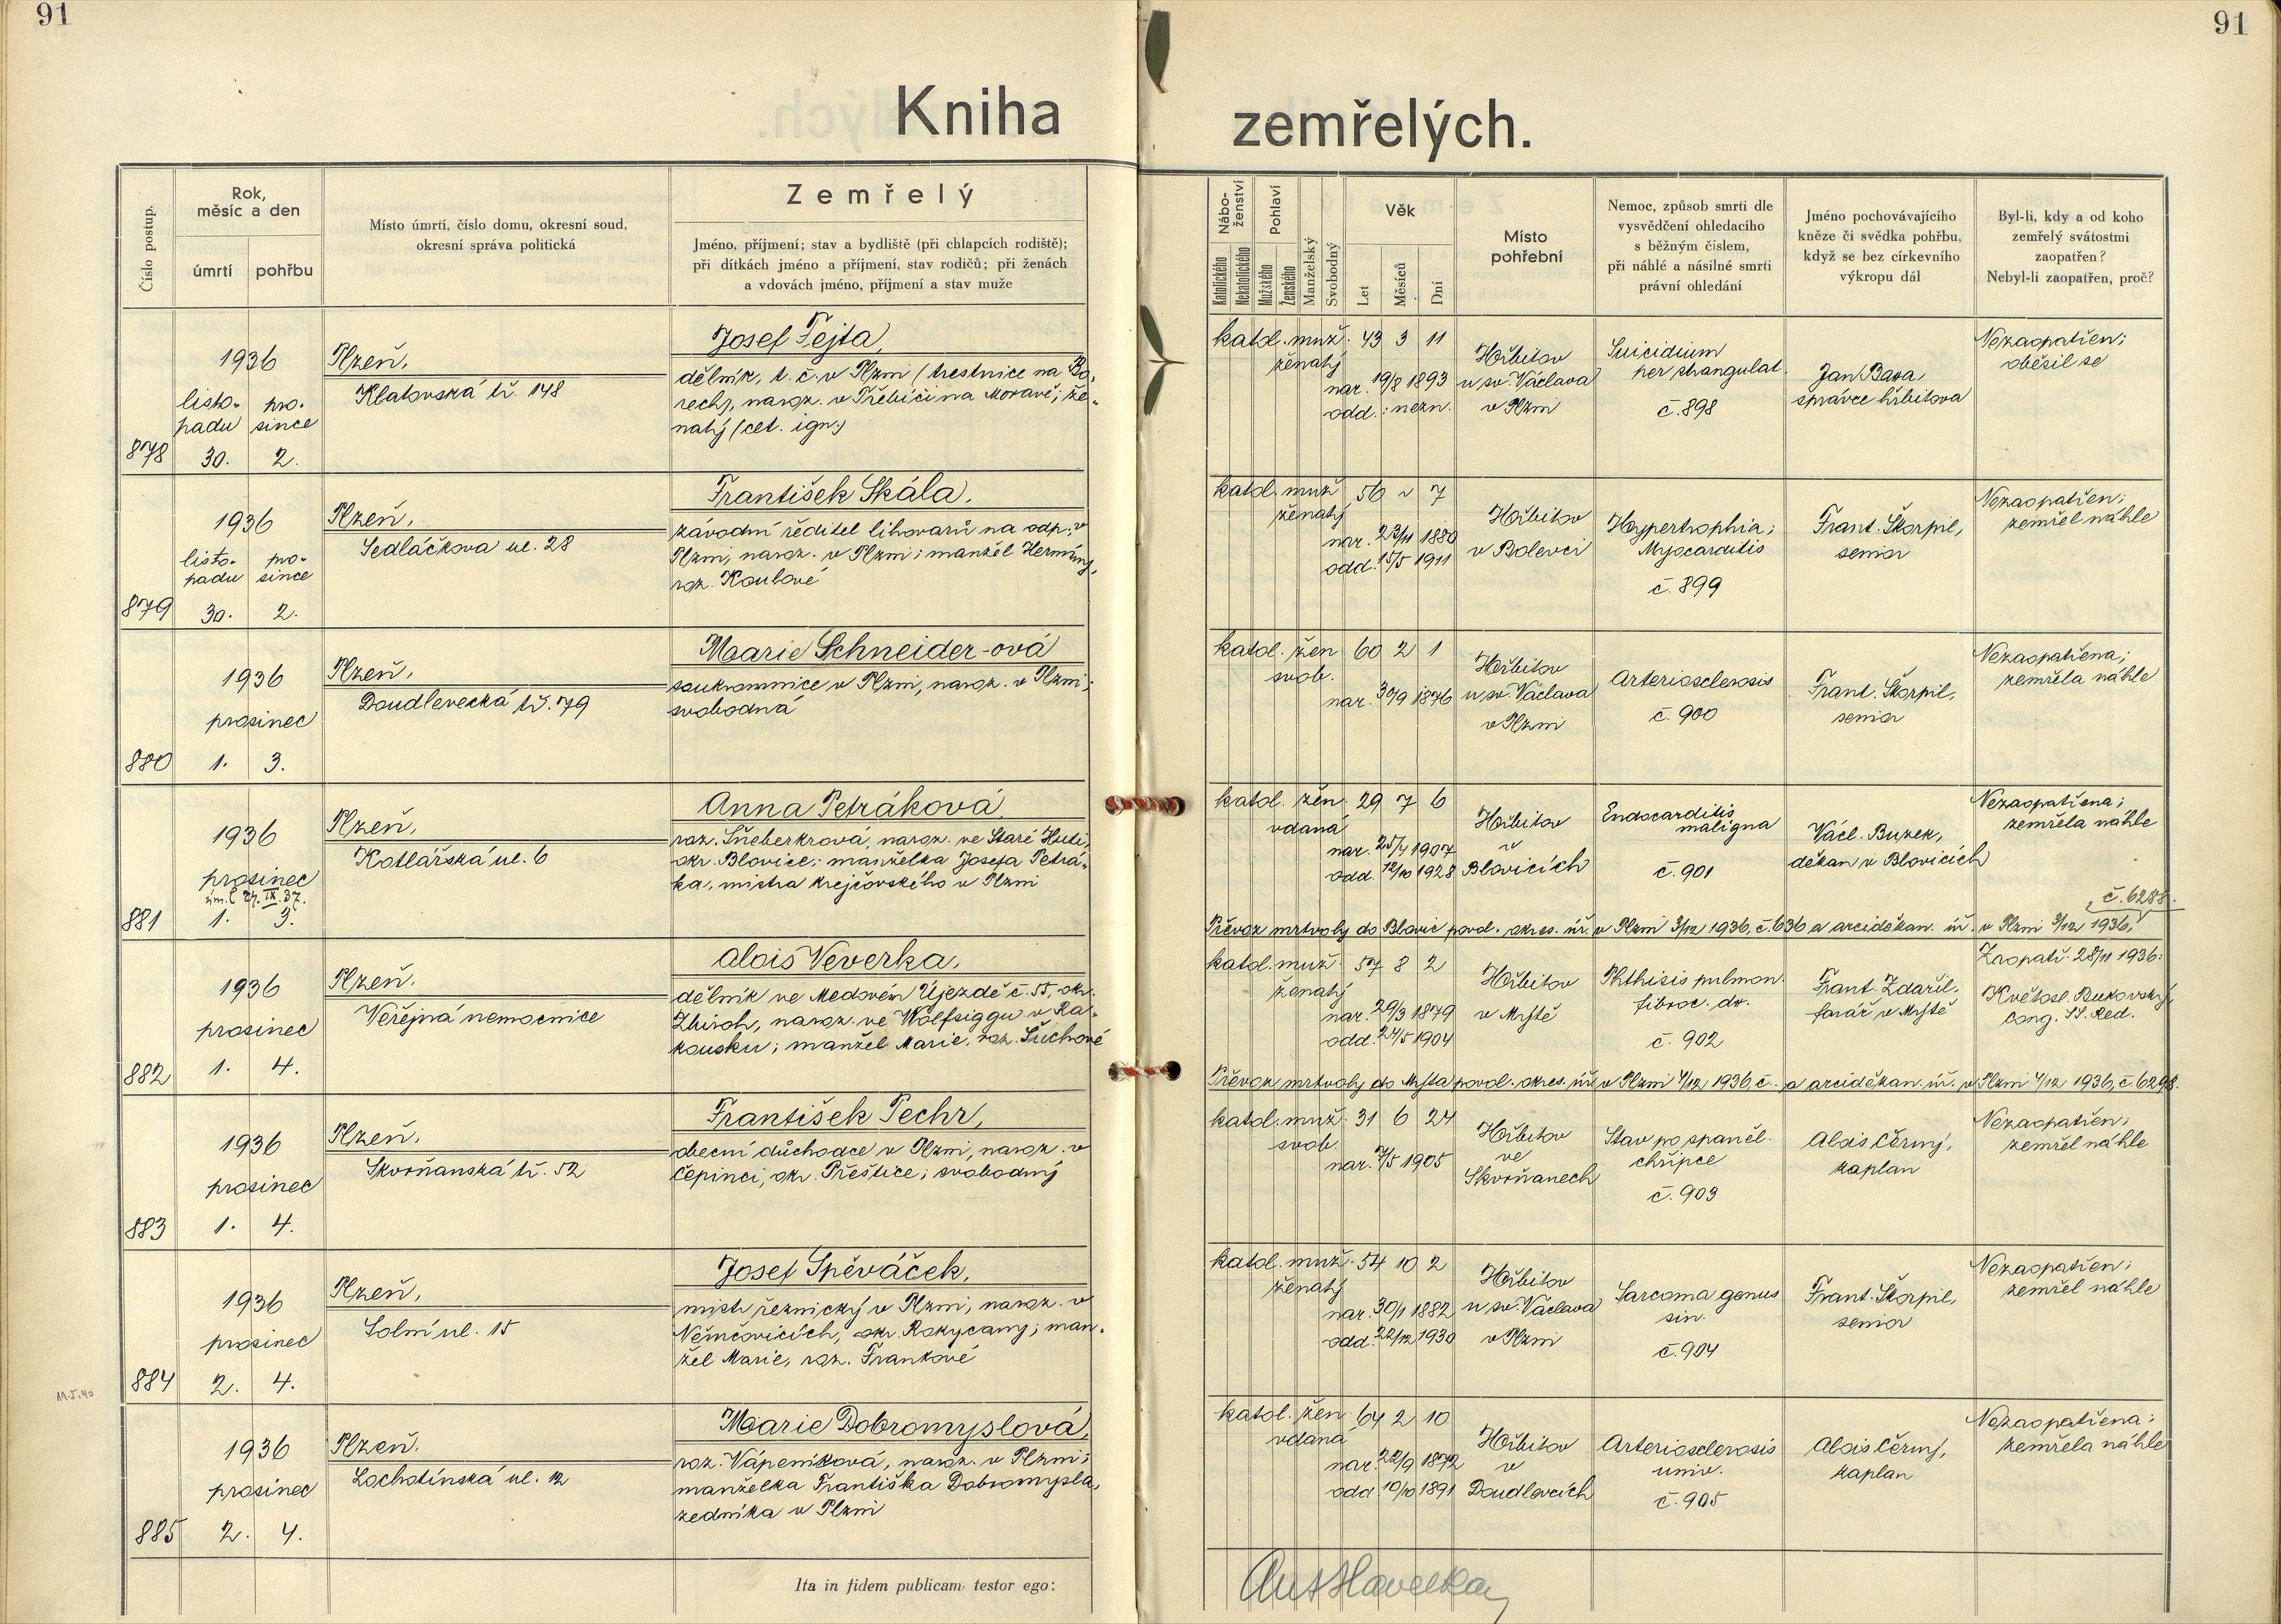 91
91
Kniha
zemřelých.
Číslo postup.
Rok,
měsíc a den
úmrtí
pohřbu
Místo úmrtí, číslo domu, okresní soud,
okresní správa politická
Zemřelý
Jméno, příjmení; stav a bydliště (při chlapcích rodiště);
při dítkách jméno a příjmení, stav rodičů; při ženách
a vdovách jméno, příjmení a stav muže
Nábo-
ženství
Katolického
Nekatolického
Pohlaví
Mužského
Ženského
Manželský
Svobodný
Věk
Let
Měsíců
Dní
Místo
pohřební
Nemoc, způsob smrti dle
vysvědčení ohledacího
s běžným číslem,
při náhlé a násilné smrti
právní ohledání
Jméno pochovávajícího
kněze či svědka pohřbu,
když se bez církevního
výkropu dál
Byl-li, kdy a od koho
zemřelý svátostmi
zaopatřen?
Nebyl-li zaopatřen, proč?
878
1936
listo-
padu
30.
pro-
since
2.
Plzeň,
Klatovská tř. 148
Josef Fejta,
dělník, t. č. v Plzni (trestnice na Bo-
rech), naroz. v Třebíči na Moravě; že-
natý (cet. ign.)
katol. muž. 43 3 11
ženatý
nar. 19/8 1893
odd.: nezn.
Hřbitov
u sv. Václava
v Plzni
Suicidium
per strangulat.
č. 898
Jan Bara,
správce hřbitova
Nezaopatřen;
oběsil se
879
1936
listo-
padu
30.
pro-
since
2.
Plzeň,
Sedláčkova ul. 28
František Skála,
závodní ředitel lihovarů na odp. v
Plzni, naroz. v Plzni; manžel Hermíny,
roz. Koubové
katol. muž 56 ~ 7
ženatý
nar. 23/11 1880
odd. 15/5 1911
Hřbitov
v Bolevci
Hypertrophia;
Myocarditis
č. 899
Frant. Škorpil,
senior
Nezaopatřen;
zemřel náhle
880
1936
prosinec
1. 3.
Plzeň,
Doudlevecká tř. 79
Marie Schneider-ová
soukromnice v Plzni, naroz. v Plzni;
svobodná
katol. žen 60 2 1
svob.
nar. 30/9 1876
Hřbitov
u sv. Václava
v Plzni
Arteriosclerosis
č. 900
Frant. Škorpil,
senior
Nezaopatřena;
zemřela náhle
881
1936
prosinec
1. 3.
Plzeň,
Kotlářská ul. 6
Anna Petráková,
roz. Šneberkrová, naroz. ve Staré Huti,
okr. Blovice; manželka Josefa Petrá-
ka, mistra krejčovského v Plzni
katol. žen. 29 7 6
vdaná
nar. 25/4 1907
odd. 12/10 1928
Hřbitov
v
Blovicích
Endocarditis
maligna
č. 901
Václ. Buzek,
děkan v Blovicích
Nezaopatřena;
zemřela náhle
č. 6288.
Převoz mrtvoly do Blovic povol. okres. úř. v Plzni 3/12 1936, č. 636 a arciděkan. úř. v Plzni 3/12 1936,
882
1936
prosinec
1. 4.
Plzeň.
Veřejná nemocnice
Alois Veverka,
dělník ve Medovém Újezdě č. 55, okr.
Zbiroh, naroz. ve Wolfsiggu v Ra-
kousku; manžel Marie, roz. Šuchové
katol. muž. 57 8 2
ženatý
nar. 29/3 1879
odd. 24/5 1904
Hřbitov
v Mýtě
Phthisis pulmon.
fibroc. dx.
č. 902
Frant. Zdařil,
farář v Mýtě
Zaopatř. 28/11 1936:
Květosl. Bukovský,
cong. SS. Red.
Převoz mrtvoly do Mýta povol. okres. úř. v Plzni 4/12 1936 č. – a arciděkan. úř. v Plzni 4/12 1936, č. 6298.
883
1936
prosinec
1. 4.
Plzeň,
Skvrňanská tř. 52
František Pechr,
obecní důchodce v Plzni, naroz. v
Čepinci, okr. Přeštice; svobodný
katol. muž. 31 6 24
svob.
nar. 7/5 1905
Hřbitov
ve
Skvrňanech
Stav po španěl.
chřipce
č. 903
Alois Černý,
kaplan
Nezaopatřen;
zemřel náhle
884
1936
prosinec
2. 4.
Plzeň,
Solní ul. 15
Josef Spěváček,
mistr řeznický v Plzni, naroz. v
Němčovicích, okr. Rokycany; man-
žel Marie, roz. Frankové
katol. muž. 54 10 2
ženatý
nar. 30/1 1882
odd. 22/12 1930
Hřbitov
u sv. Václava
v Plzni
Sarcoma genus
sin.
č. 904
Frant. Škorpil,
senior
Nezaopatřen;
zemřel náhle
11.5.40
885
1936
prosinec
2. 4.
Plzeň.
Lochotínská ul. 12
Marie Dobromyslová,
roz. Vápeníková, naroz. v Plzni;
manželka Františka Dobromysla,
zedníka v Plzni
katol. žen. 64 2 10
vdaná
nar. 22/9 1872
odd. 10/10 1891
Hřbitov
v
Doudlevcích
Arteriosclerosis
univ.
č. 905
Alois Černý,
kaplan
Nezaopatřena;
zemřela náhle
Ita in fidem publicam testor ego:
Ant Havelka